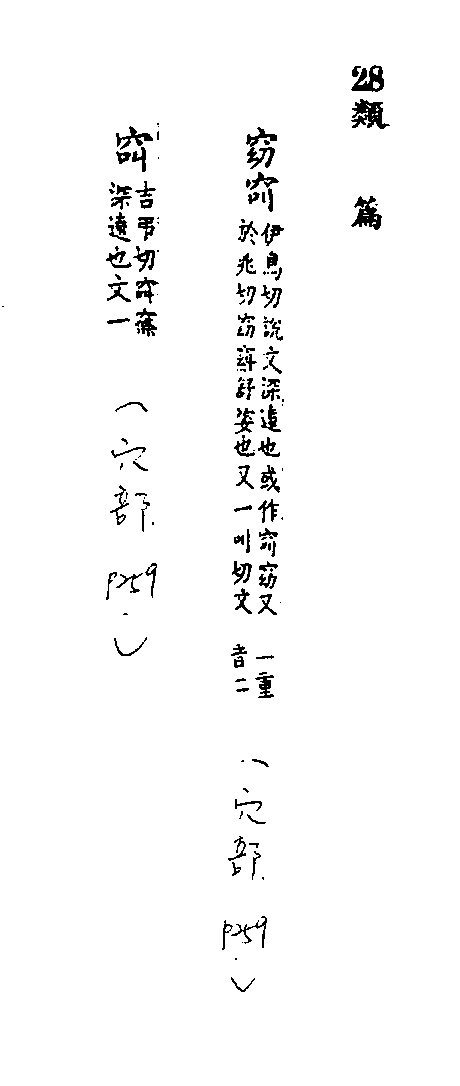 28類 篇
窈窅
伊鳥切說文深遠也或作窅窈又
於兆切窈窱舒姿也又一叫切文
一重
音二
(穴部 P259.)
吉弔切窅窱
深遠也文一
(穴部 P259.)